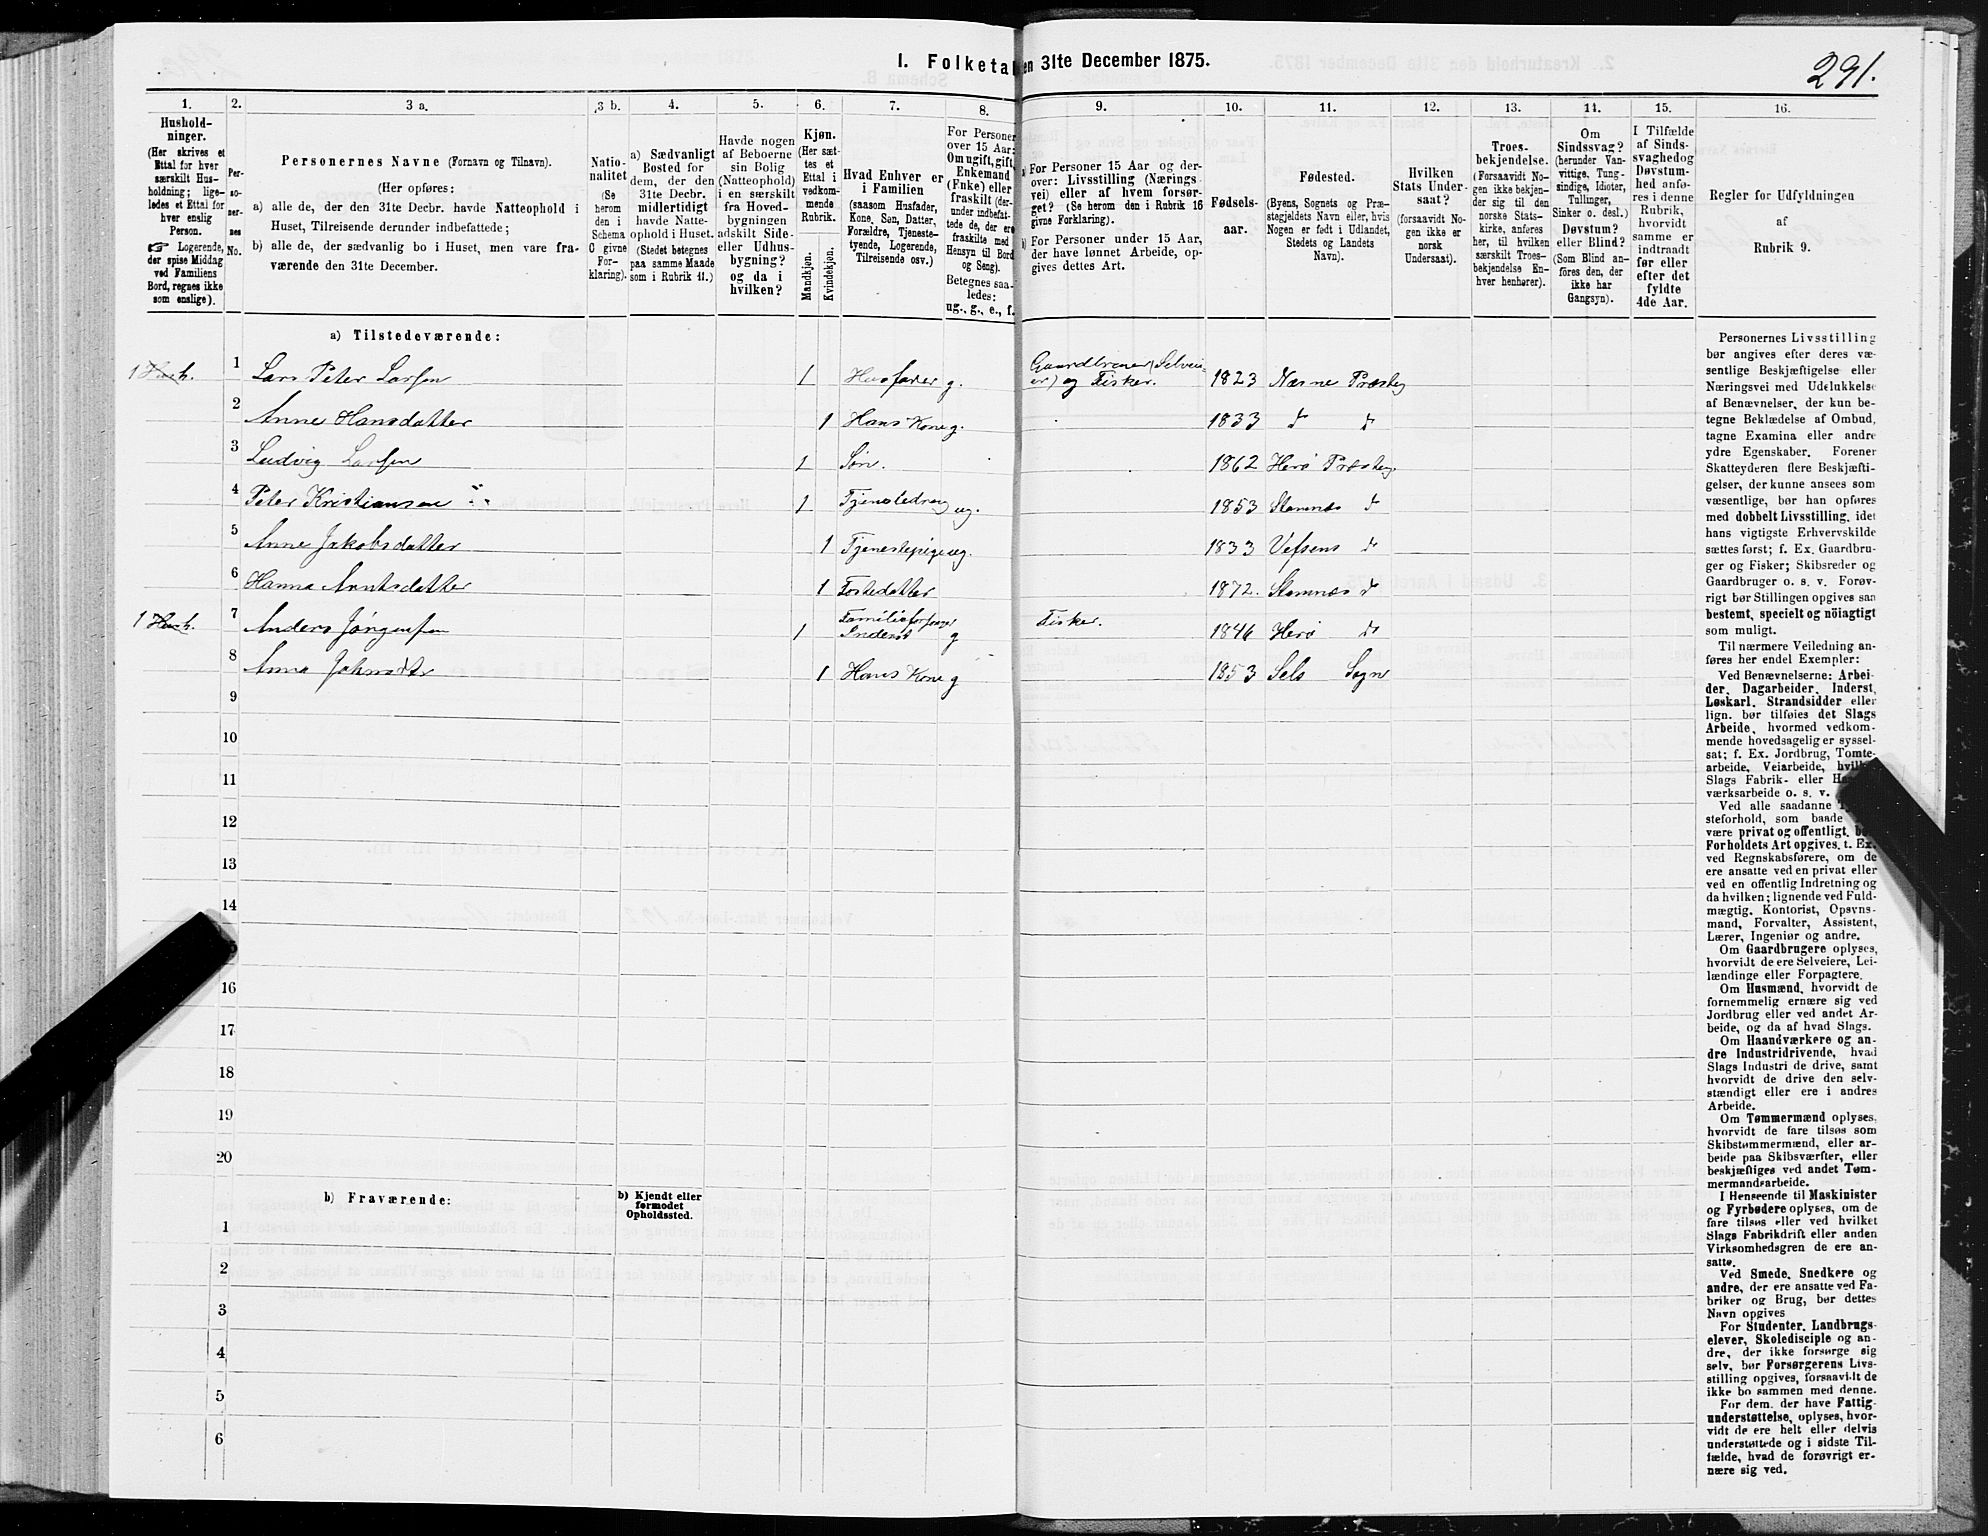 I. Folketa en 31te December 1875.
291.
1.
Hushold-
ninger.
(Her skrives et
Ettal for hver
særskilt Hus-
holdning; lige-
ledes et Ettal for
hver enslig
Person.
☞ Logerende,
der spise Middag
ved Familiens
Bord, regnes ikke
som enslige).
2.
Per-
so-
ner-
nes
No.
3 a.
Personernes Navne (Fornavn og Tilnavn).
(Her opføres:
a) alle de, der den 31te Decbr. havde Natteophold i
Huset, Tilreisende derunder indbefattede;
b) alle de, der sædvanlig bo i Huset, men vare fra-
værende den 31te December.
3 b.
Natio-
nalitet
(Se
herom
den i
Schema
C givne
For-
klaring).
4.
a) Sædvanligt
Bosted for
dem, der den
31te Decbr.
midlertidigt
havde Natte-
ophold i Huset.
(Stedet betegnes
paa samme Maade
som i Rubrik 11.)
5.
Havde nogen
af Beboerne
sin Bolig
(Natteophold)
i en særskilt
fra Hoved-
bygningen
adskilt Side-
eller Udhus-
bygning?
og da i
hvilken?
6.
Kjøn.
(Her sæt-
tes et
Ettal i
vedkom-
mende
Rubrik.
Mandkjøn.
Kvindekjøn.
7.
Hvad Enhver er
i Familien
(saasom Husfader,
Kone, Søn, Datter,
Forældre, Tjeneste-
tyende, Logerende,
Tilreisende osv.)
8.
For Personer
over 15 Aar:
Om ugift, gift,
Enkemand
(Enke) eller
fraskilt (der-
under indbefat-
tede de, der ere
fraskilte med
Hensyn til Bord
og Seng).
Betegnes saa-
ledes:
ug., g., e., f.
9.
a) For Personer 15 Aar og der-
over: Livsstilling (Nærings-
vei) eller af hvem forsør-
get? (Se herom den i Rubrik 16
givne Forklaring).
b) For Personer under 15 Aar,
der have lønnet Arbeide, op-
gives dettes Art.
10.
Fødsels-
aar.
11.
Fødested.
(Byens, Sognets og Præ-
stegjeldets Navn eller, hvis
Nogen er født i Udlandet,
Stedets og Landets
Navn).
12.
Hvilken
Stats Under-
saat?
(forsaavidt No-
gen ikke er
norsk
Undersaat).
13.
Troes-
bekjendelse.
(Forsaavidt No-
gen ikke bekjen-
der sig til den
norske Stats-
kirke, anføres
her, til hvilken
særskilt Troes-
bekjendelse En-
hver henhører).
14.
Om
Sindssvag?
(herunder Van-
vittige, Tung-
sindige, Idioter,
Tullinger,
Sinker o. desl.)
Døvstum?
eller Blind?
(Som Blind an-
føres den, der
ikke har
Gangsyn).
15.
I Tilfælde
af Sinds-
svaghed og
Døvstum-
hed anfø-
res i denne
Rubrik,
hvorvidt
samme er
indtraadt
før eller
efter det
fyldte
4de Aar.
16.
Regler for Udfyldningen
af
Rubrik 9.
a) Tilstedeværende:
1 Hush. 1 Lars Peter Larsen 1 Husfader g. Gaardbruger (Selvei-
er) og Fisker. 1823 Næsne Præsteg
2 Anne Hansdatter 1 Hans Kone g. 1833 d d
3 Ludvig Larsen 1 Søn. 1862 Herø Præsteg.
4 Peter Kristiansen 1 Tjenestedreng ug. 1853 Stamnæs d
5 Anne Jakobsdatter 1 Tjenestepige ug. 1833 Vefsens d
6 Hanna Arntsdatter 1 Fostedatter 1872. Stamnæs d
1 Hush. 7 Anders Jørgensen 1 Familieforsørger
Inderst g Fisker. 1846 Herø d
8 Anna Johnsdtr 1 Hans Kone g 1853 Sels Sogn
9
10
11
12
13
14
16
17
18
19
20
b) Fraværende:
b) Kjendt eller
formodet
Opholdssted.
1
2
3
4
5
6
Personernes Livsstilling
bør angives efter deres væ-
sentlige Beskjæftigelse eller
Næringsvei med Udelukkelse
af Benævnelser, der kun be-
tegne Beklædelse af Ombud,
tagne Examina eller andre
ydre Egenskaber. Forener
Skatteyderen flere Beskjæfti-
gelser, der kunne ansees som
væsentlige, bør han opføres
med dobbelt Livsstilling, idet
hans vigtigste Erhvervskilde
sættes først; f. Ex. Gaardbru-
ger og Fisker; Skibsreder og
Gaardbruger o. s. v. Forøv-
rigt bør Stillingen opgives saa
bestemt, specielt og nöiagtigt
som muligt.
Til nærmere Veiledning an-
føres her endel Exempler:
Ved Benævnelserne: Arbei-
der, Dagarbeider, Inderst,
Løskarl, Strandsidder eller
lign. bør tilføies det Slags
Arbeide, hvormed vedkom-
mende hovedsagelig er syssel-
sat; f. Ex. Jordbrug, Tomte-
arbeide, Veiarbeide, hvil
Slags Fabrik- eller Ha
værksarbeide o. s. v.
Ved alle saadanne
steforhold, som baade
være privat og offentligt, bør
Forholdets Art opgives. t. Ex.
ved Regnskabsførere, om de
ere ansatte ved en privat eller
ved en offentlig Indretning og
da hvilken; lignende ved Fuld-
mægtig, Kontorist, Opsyns-
mand, Forvalter, Assistent,
Lærer, Ingeniør og andre.
Om Gaardbrugere oplyses,
hvorvidt de ere Selveiere, Lei-
lændinge eller Forpagtere.
Om Husmænd, hvorvidt de
fornemmelig ernære sig ved
Jordbrug eller ved andet Ar-
beide, og da af hvad Slags.
Om Haandværkere og an-
dre Industridrivende, hvad
Slags Industri de drive, samt
hvorvidt de drive den selv-
stændigt eller ere i andres
Arbeide.
Om Tømmermænd oplyses,
hvorvidt de fare tilsøs som
Skibstømmermænd, eller ar-
beide paa Skibsværfter, eller
beskjæftiges ved andet Tøm-
mermandsarbeide.
I Henseende til Maskinister
og Fyrbødere oplyses, om de
fare tilsøs eller ved hvilket
Slags Fabrikdrift eller anden
Virksomhedsgren de ere an-
satte.
Ved Smede, Snedkere og
andre, der ere ansatte ved Fa-
briker og Brug, bør dettes
Navn opgives
For Studenter, Landbrugs-
elever, Skoledisciple og an-
dre, der ikke forsørge sig
selv, bør Forsørgerens Livs-
stilling opgives, forsaavidt de
ikke bo sammen med denne.
For dem, der have Fattig-
understøttelse, oplyses, hvor-
vidt de ere helt eller delvis
understøttede og i sidste Til-
fælde, hvad de forøvrigt er-
nære sig ved.